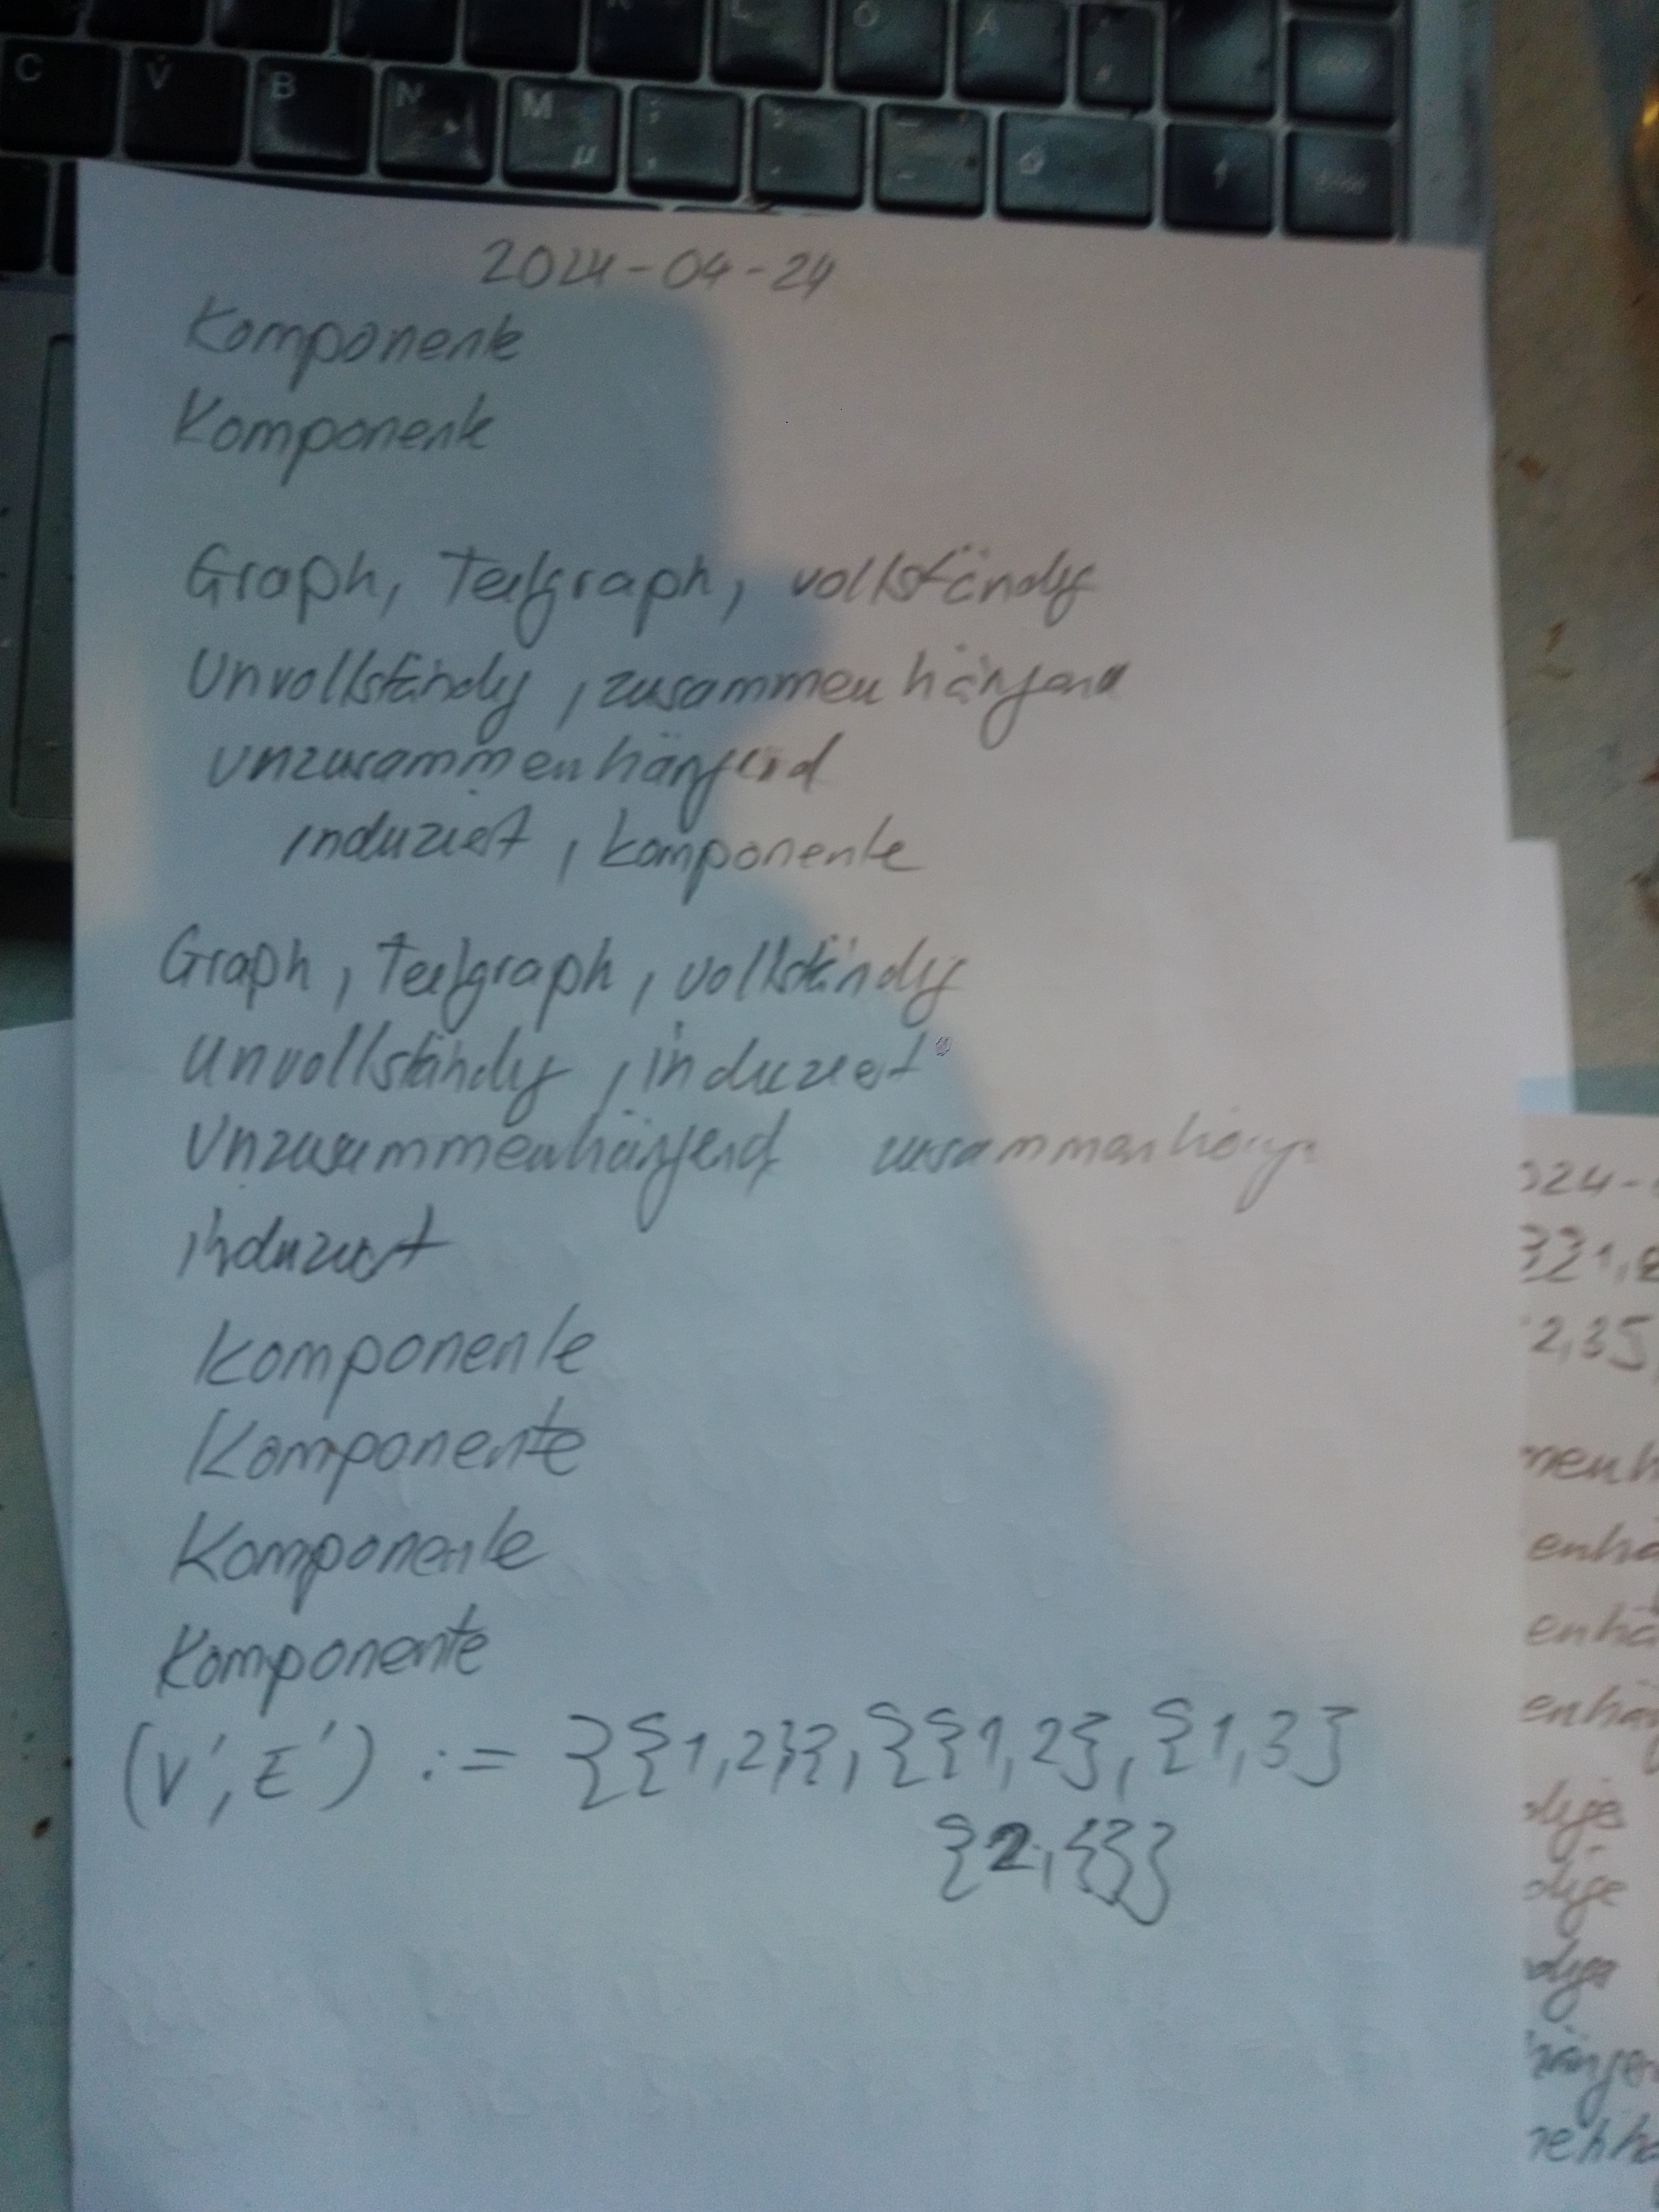 C V B N M µ
2024-04-24
Komponente
Komponente
Graph, Teilgraph, vollständig
Unvollständig, zusammenhängend
unzusammenhängend
induziert, komponente
Graph, Teilgraph, vollständig
Unvollständig, induziert
Unzusammenhängend zusammenhäng
induziert
Komponente
Komponente
Komponente
Komponente
(V', E') := {{1,2}}, {{1,2}, {1,3}
{2,{}}
024-
2,35
menh
enhä
enhä
enhä
dige
dige